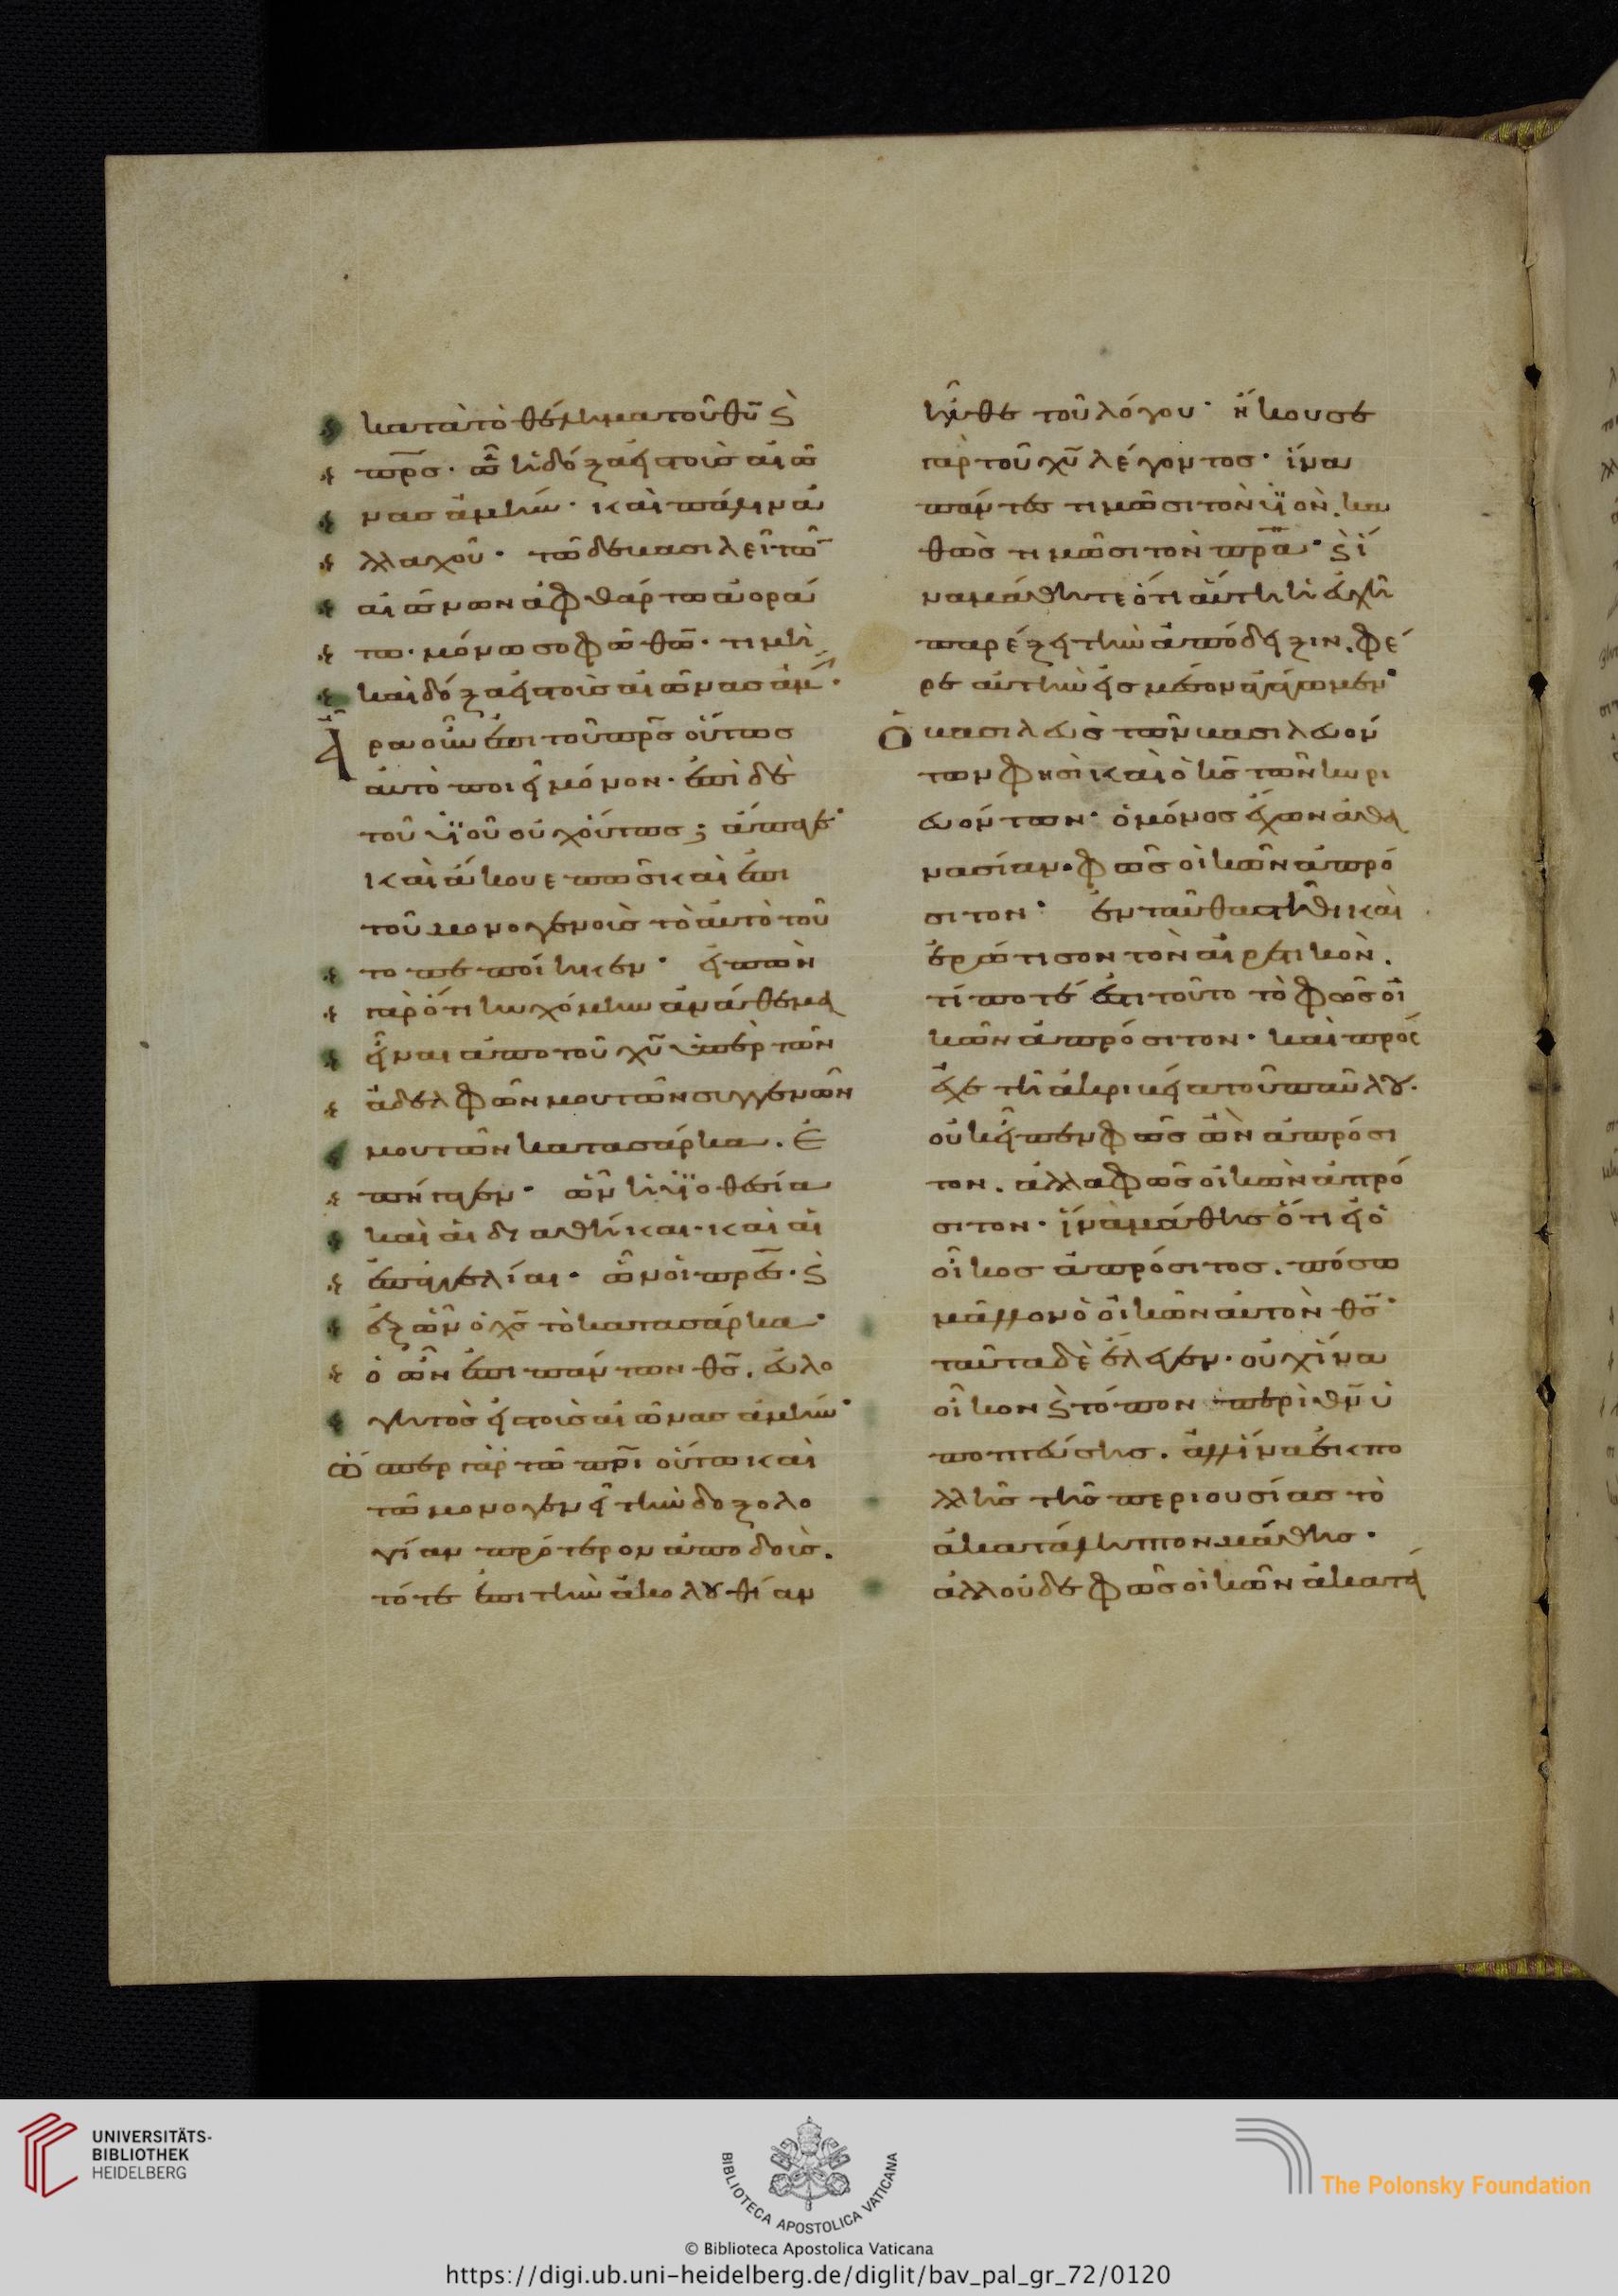 κατὰ τὸ θέλημα τοῦ θυ̅ ϛ
πρ̅σ· ὧ ἡ δόξα εἰς τοὺς αἰῶ
νας ἀμήν· καὶ πάλιν ἀ
λλαχοῦ· τῶ δὲ βασιλεῖ τῶ̅
αἰώνων ἀφθάρτω ἀορά
τω· μόνω σοφῶ θῶ· τιμὴ
καὶ δόξα εἰς τοὺς αἰῶνας ἀμ̅·
Ἆρα οὖν ἐπὶ τοῦ πρ̅σ οὕτως
αὐτὸ ποιεῖ μόνον· ἐπὶ δὲ
τοῦ υἱοῦ οὐχ οὕτως; ἄπαγε·
καὶ ἄκουε πῶς καὶ ἐπὶ
τοῦ μονογενοῦς τὸ αὐτὸ τοῦ
το πεποίηκεν· εἰπὼν
γὰρ ὅτι ηὐχόμην ἀνάθεμα
εἶναι ἀπὸ τοῦ χυ̅ ὑπὲρ τῶν
ἀδελφῶν μου τῶν συγγενῶν
μου τῶν κατὰ σάρκα. ἐ
πήγαγεν· ὧν ἡ υἱοθεσία
καὶ αἱ διαθῆκαι· καὶ αἱ
ἐπαγγελίαι· ὧν οἱ πρ̅ες· ϛ
ἐξ ὧν ὁ χσ̅ τὸ κατὰ σάρκα·
ὁ ὢν ἐπὶ πάντων θσ̅. εὐλο
γητὸς εἰς τοὺς αἰῶνας ἀμήν·
ὥσπερ γὰρ τῶ πρ̅ι οὕτω καὶ
τῶ μονογενεῖ τὴν δοξολο
γίαν πρότερον ἀποδούς.
τότε ἐπὶ τὴν ἀκολουθίαν
ἦλθε τοῦ λόγου· ἤκουσε
γὰρ τοῦ χυ̅ λέγοντος· ἵνα
πάντες τιμῶσι τὸν υἱὸν. κα
θὼς τιμῶσι τὸν πρ̅α· ϛ ἵ
να μάθητε ὅτι αὐτὴ ἡ εὐχὴ
παρέξει τὴν ἀπόδειξιν. φέ
ρε αὐτὴν εἰς μέσον ἀγάγωμεν·
Ὁ βασιλεὺς τῶν βασιλευόν
των φησὶ καὶ ὁ κσ̅ τῶν κυρι
ευόντων· ὁ μόνος ἔχων ἀθα
νασίαν· φῶς οἰκῶν ἀπρό
σιτον· ἐνταῦθα στῆθι καὶ
ἐρώτησον τὸν αἱρετικὸν.
τί ποτέ ἐστι τοῦτο τὸ φῶς οἰ
κῶν ἀπρόσιτον· καὶ πρόσ
εχε τῆ ἀκριβεία τοῦ παύλου.
οὐκ εἶπεν φῶς ὢν ἀπρόσι
τον. ἀλλὰ φῶς οἰκῶν ἀπρό
σιτον· ἵνα μάθης ὅτι εἰ ὁ
οἶκος ἀπρόσιτος. πόσω
μᾶλλον ὁ οἰκῶν αὐτὸν θσ̅·
ταῦτα δὲ ἔλεγεν· οὐχ ἵνα
οἶκον ϛ τόπον περὶ θν̅ ὑ
ποπτεύσης. ἀλλ' ἵνα ἐκ πο
λλῆς τῆς περιουσίας τὸ
ἀκατάληπτον μάθης·
ἀλλ' οὐδὲ φῶς οἰκῶν ἀκατά
UNIVERSITÄTS-
BIBLIOTHEK
HEIDELBERG
BIBLIOTECA APOSTOLICA VATICANA
The Polonsky Foundation
© Biblioteca Apostolica Vaticana
https://digi.ub.uni-heidelberg.de/diglit/bav_pal_gr_72/0120